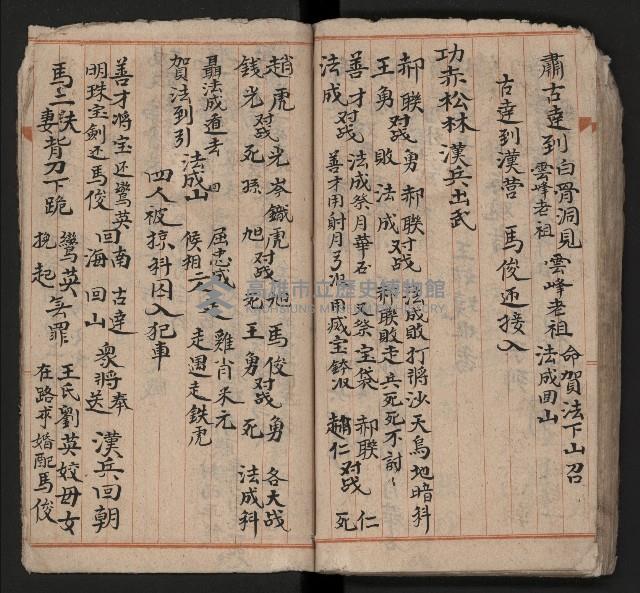 肅古達到白骨洞見 雲峰老祖 命賀法下山召
雲峰老祖 法成回山
古達到漢营 馬俊迎接入
功赤松林 漢兵出武
郝聯对战勇 郝聯对战 法成敗 打將沙天烏地暗科
王勇敗 法成对战 郝聯敗走 兵死死不討
善才对战 法成祭月華 又祭宝袋 郝聯 仁
法成 善才用射月弓 用 宝鉢收 趙仁对战 死
趙虎对战光 岑鐵虎对战旭 馬俊对战勇 各大战
錢光死 孫旭死 王勇死 法成科
聶法成道去 回 屈忠成 雞肖釆元
賀法到引 法成山 候相 走遇走鉄虎
四人被掠科囚入犯車
善才將宝还鸞英 回南 古達 衆將奉
明珠宝劍还馬俊 回海 回山 送 漢兵回朝
馬二 妻背刀下跪 鸞英 挽起 無罪 王氏劉英姣母女
在路 婚配馬俊
高雄市立歷史博物館
KAOHSIUNG MUSEUM OF HISTORY